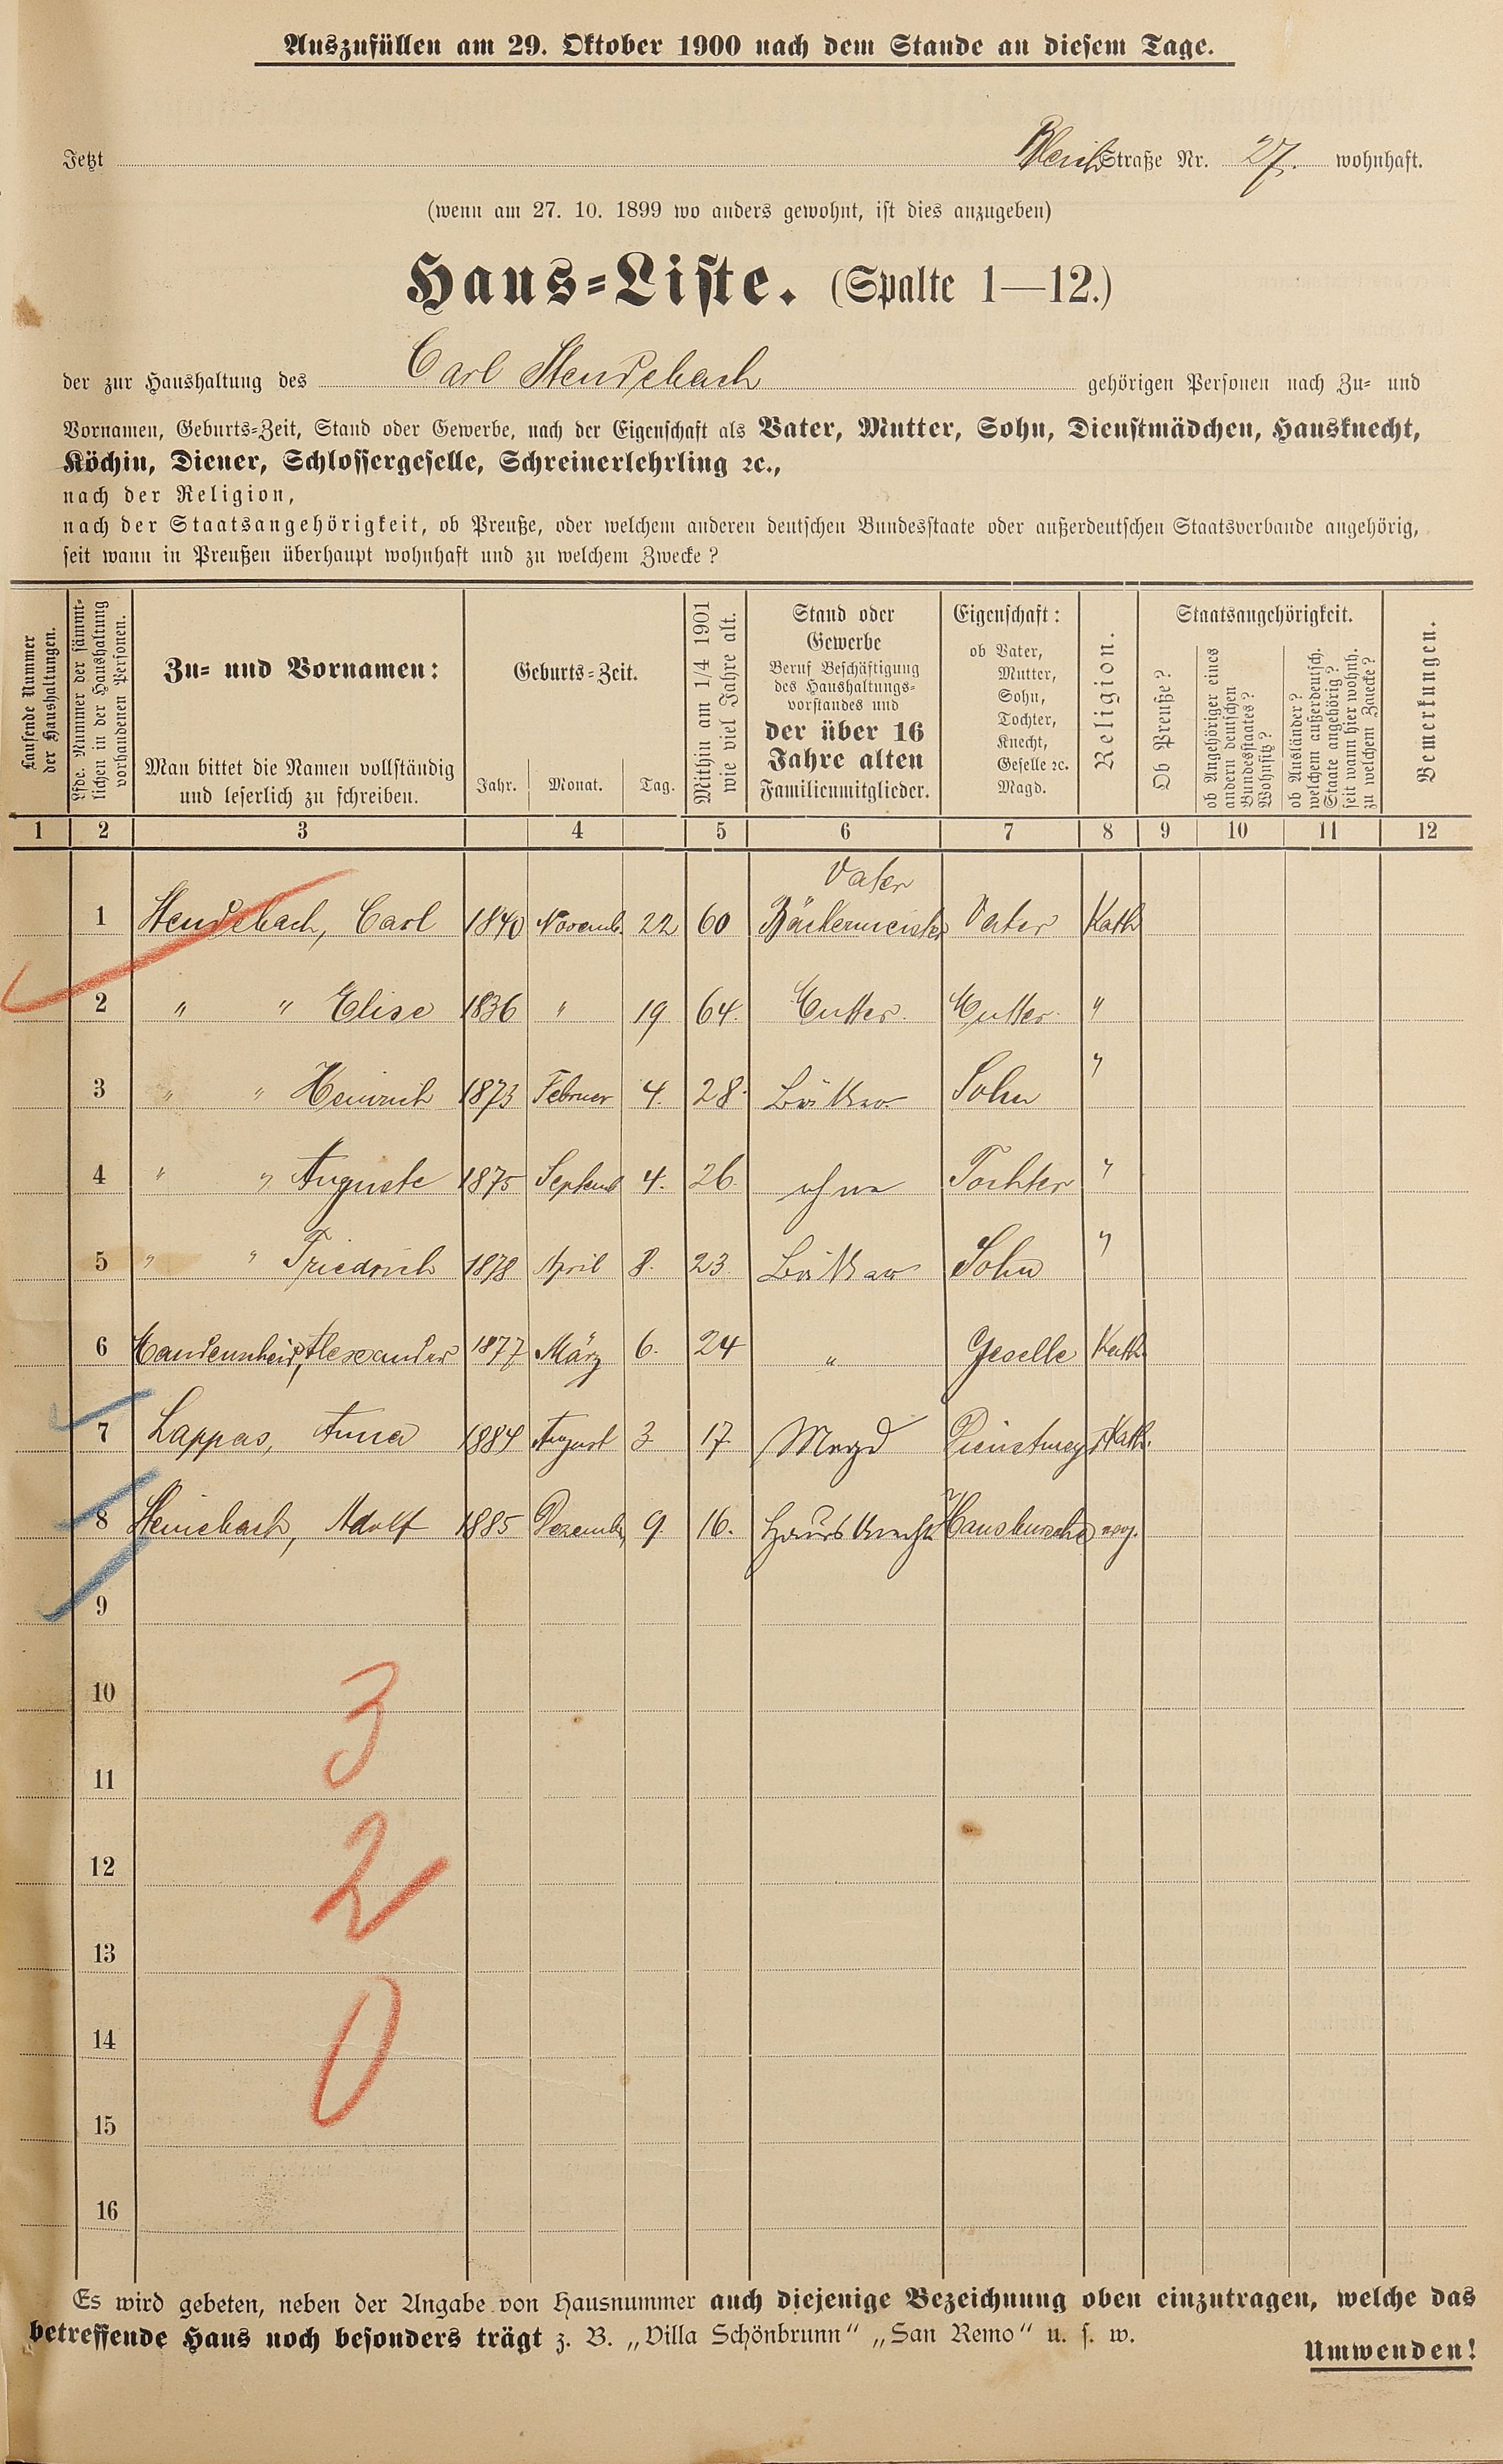 Auszufüllen am 29. Oktober 1900 nach dem Stande an diesem Tage.
Jetzt Straße Nr. 27. wohnhaft.
(wenn am 27. 10. 1899 wo anders gewohnt, ist dies anzugeben)
Haus-Liste. (Spalte 1—12.)
der zur Haushaltung des Carl Stendebach gehörigen Personen nach Zu- und
Vornamen, Geburts-Zeit, Stand oder Gewerbe, nach der Eigenschaft als Vater, Mutter, Sohn, Dienstmädchen, Hausknecht,
Köchin, Diener, Schlossergeselle, Schreinerlehrling ꝛc.,
nach der Religion,
nach der Staatsangehörigkeit, ob Preuße, oder welchem anderen deutschen Bundesstaate oder außerdeutschen Staatsverbande angehörig,
seit wann in Preußen überhaupt wohnhaft und zu welchem Zwecke?
Laufende Nummer
der Haushaltungen.
Lfde. Nummer der sämmt-
lichen in der Haushaltung
vorhandenen Personen.
Zu- und Vornamen:
Man bittet die Namen vollständig
und leserlich zu schreiben.
Geburts-Zeit.
Jahr. Monat. Tag.
Mithin am 1/4 1901
wie viel Jahre alt.
Stand oder
Gewerbe
Beruf Beschäftigung
des Haushaltungs-
vorstandes und
der über 16
Jahre alten
Familienmitglieder.
Eigenschaft:
ob Vater,
Mutter,
Sohn,
Tochter,
Knecht,
Geselle ꝛc.
Magd.
Religion.
Staatsangehörigkeit.
Ob Preuße?
ob Angehöriger eines
andern deutschen
Bundesstaates?
Wohnsitz?
ob Ausländer?
welchem außerdeutsch.
Staate angehörig?
seit wann hier wohnh.
zu welchem Zwecke?
Bemerkungen.
1 2 3 4 5 6 7 8 9 10 11 12
Vater
1 Stendebach, Carl 1840 Novemb. 22 60 Bäckermeister Vater Kath
2 " " Elise 1836 " 19 64. Mutter. Mutter. "
3 " " Heinrich 1873 Februar 4. 28. Bäcker Sohn "
4 " " Auguste 1875 Septemb 4. 26. ohne Tochter "
5 " " Friedrich 1878 April 8. 23. Bäcker Sohn "
6 Alexander 1877 März 6. 24 " Geselle Kath.
7 Lappas, Anna 1884 August 3 17. Magd Dienstmagd Kath.
8 Adolf 1885 Dezember 9. 16. Hausknecht Hausbursche
9
10
11
12
13
14
15
16
3
2
0
Es wird gebeten, neben der Angabe von Hausnummer auch diejenige Bezeichnung oben einzutragen, welche das
betreffende Haus noch besonders trägt z. B. „Villa Schönbrunn“ „San Remo“ u. s. w.
Umwenden!